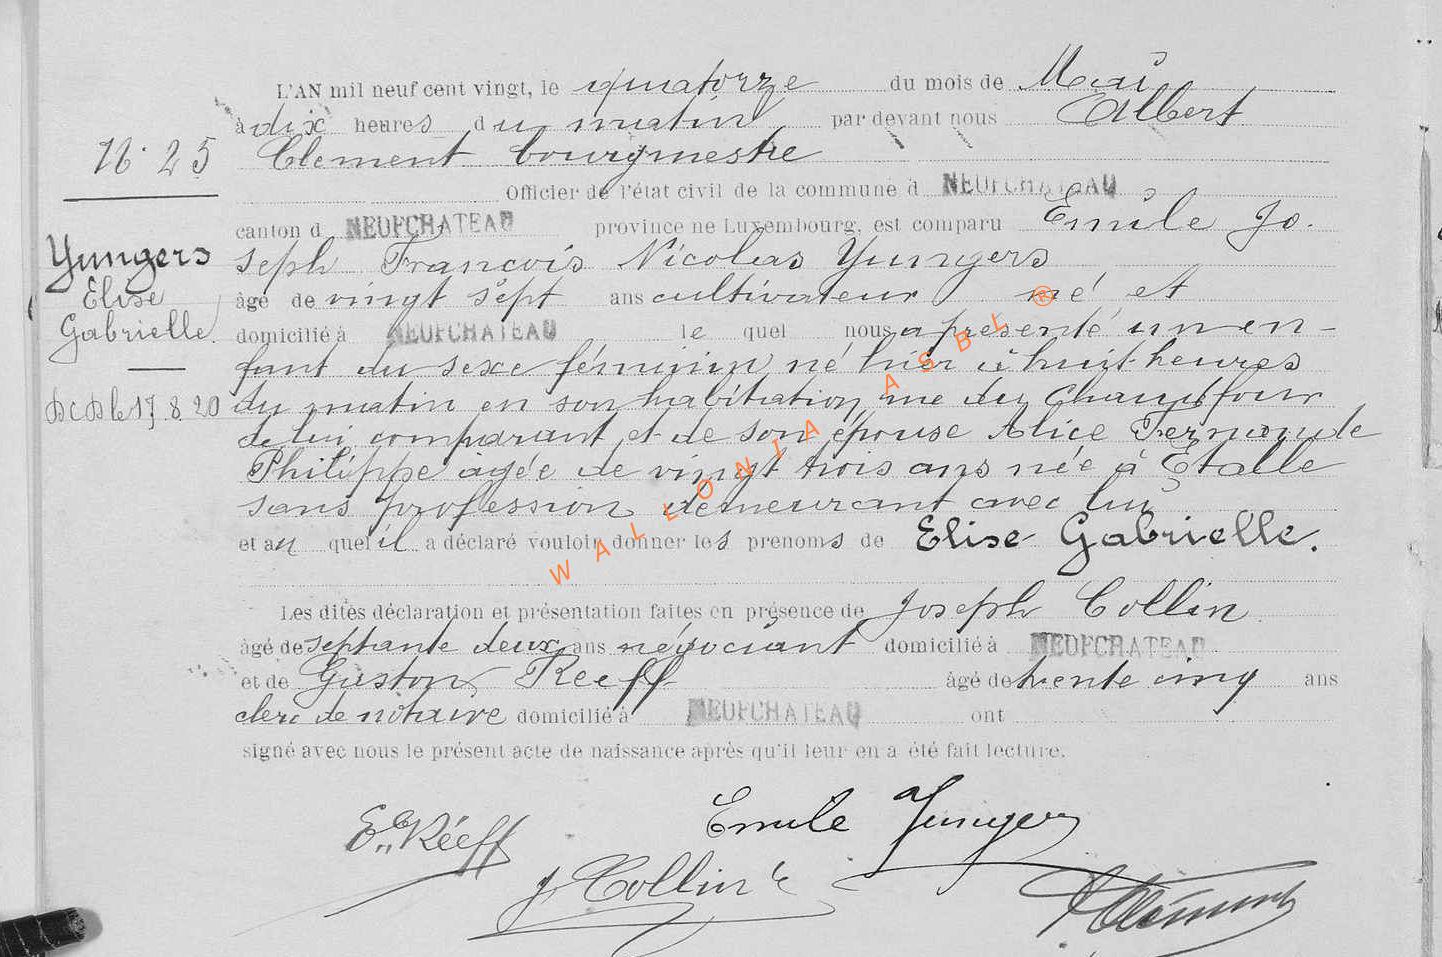 L'AN mil neuf cent vingt, le quatorze du mois de Mai
à dix heures du matin par devant nous Albert
Clement bourgmestre
Officier de l'état civil de la commune d NEUFCHATEAU
canton d NEUFCHATEAU province ne Luxembourg, est comparu Emile Jo-
seph François Nicolas Yungers
âgé de vingt sept ans cultivateur né et
domicilié à NEUFCHATEAU le quel nous a présenté un en-
fant du sexe féminin né hier à huit heures
du matin en son habitation, rue du Chaudfour
de lui comparant et de son épouse Alice Fernande
Philippe âgée de vingt trois ans née à Etalle
sans profession demeurant avec lui
et au quel il a déclaré vouloir donner les prenoms de Elise Gabrielle.
Les dites déclaration et présentation faites en présence de Joseph Collin
âgé de septante deux ans négociant domicilié à NEUFCHATEAU
et de Gaston Reeff âgé de trente cinq ans
clerc de notaire domicilié à NEUFCHATEAU ont
signé avec nous le présent acte de naissance après qu'il leur en a été fait lecture.
N° 25
Yungers
Elise
Gabrielle.
Dcd le 17.8.20
Réeff
Emile Yungers
J Collin
AClément
WALLONIA ASBL ®